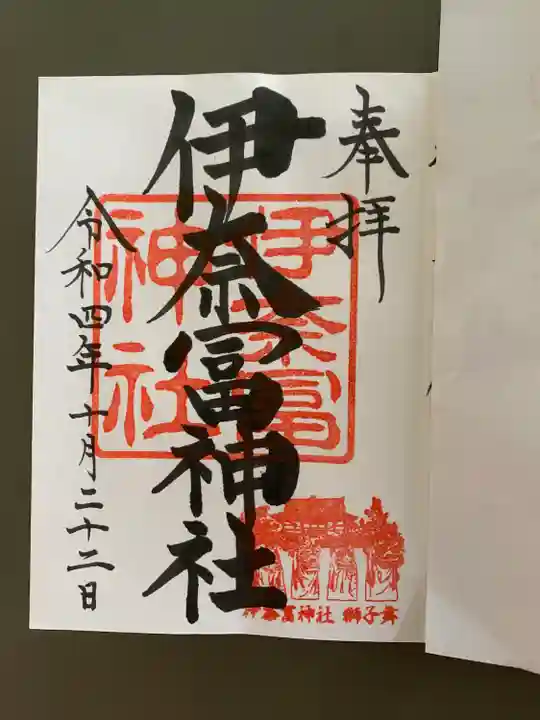 奉拝
伊奈冨神社
伊奈冨
神社
令和四年十月二十二日
伊奈冨神社 獅子舞